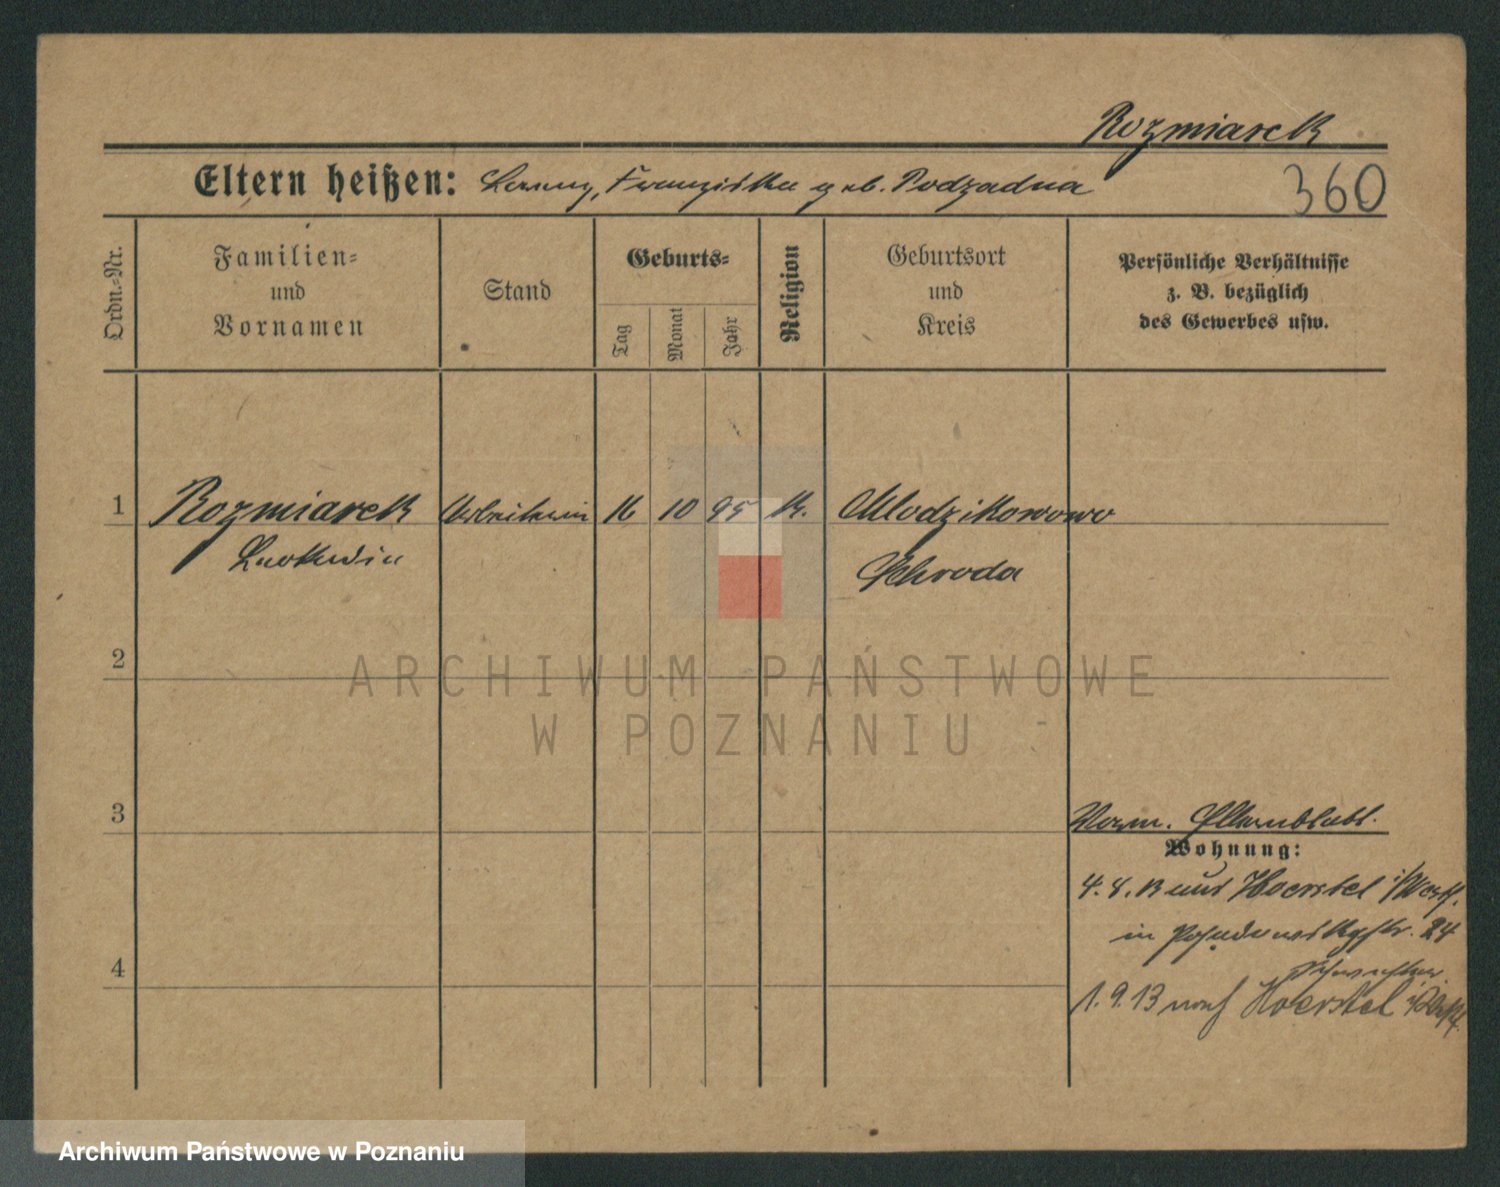 Rozmiarek
Eltern heißen: Lorenz, Franziska geb. Podzadna
360
Ordn.-Nr.
Familien-
und
Vornamen
Stand
Geburts-
Tag
Monat
Jahr
Religion
Geburtsort
und
Kreis
Persönliche Verhältnisse
z. B. bezüglich
des Gewerbes usw.
1 Rozmiarek Arbeiterin 16 10 95 k. Mlodzikowowo
Schroda
2
ARCHIWUM PAŃSTWOWE
W POZNANIU
3
Elternblatt.
Wohnung:
4. 8. 13 aus Hoerstel i/Westf.
in 24
4
1. 9. 13 nach Hoerstel i/Westf.
Archiwum Państwowe w Poznaniu